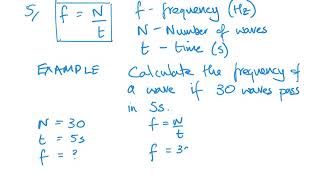 5, f = N/t f - frequency (Hz)
N - Number of waves
t - time (s)
EXAMPLE Calculate the frequency of
a wave if 30 waves pass
in 5s.
N = 30 f = N/t
t = 5s
f = ? f = 3